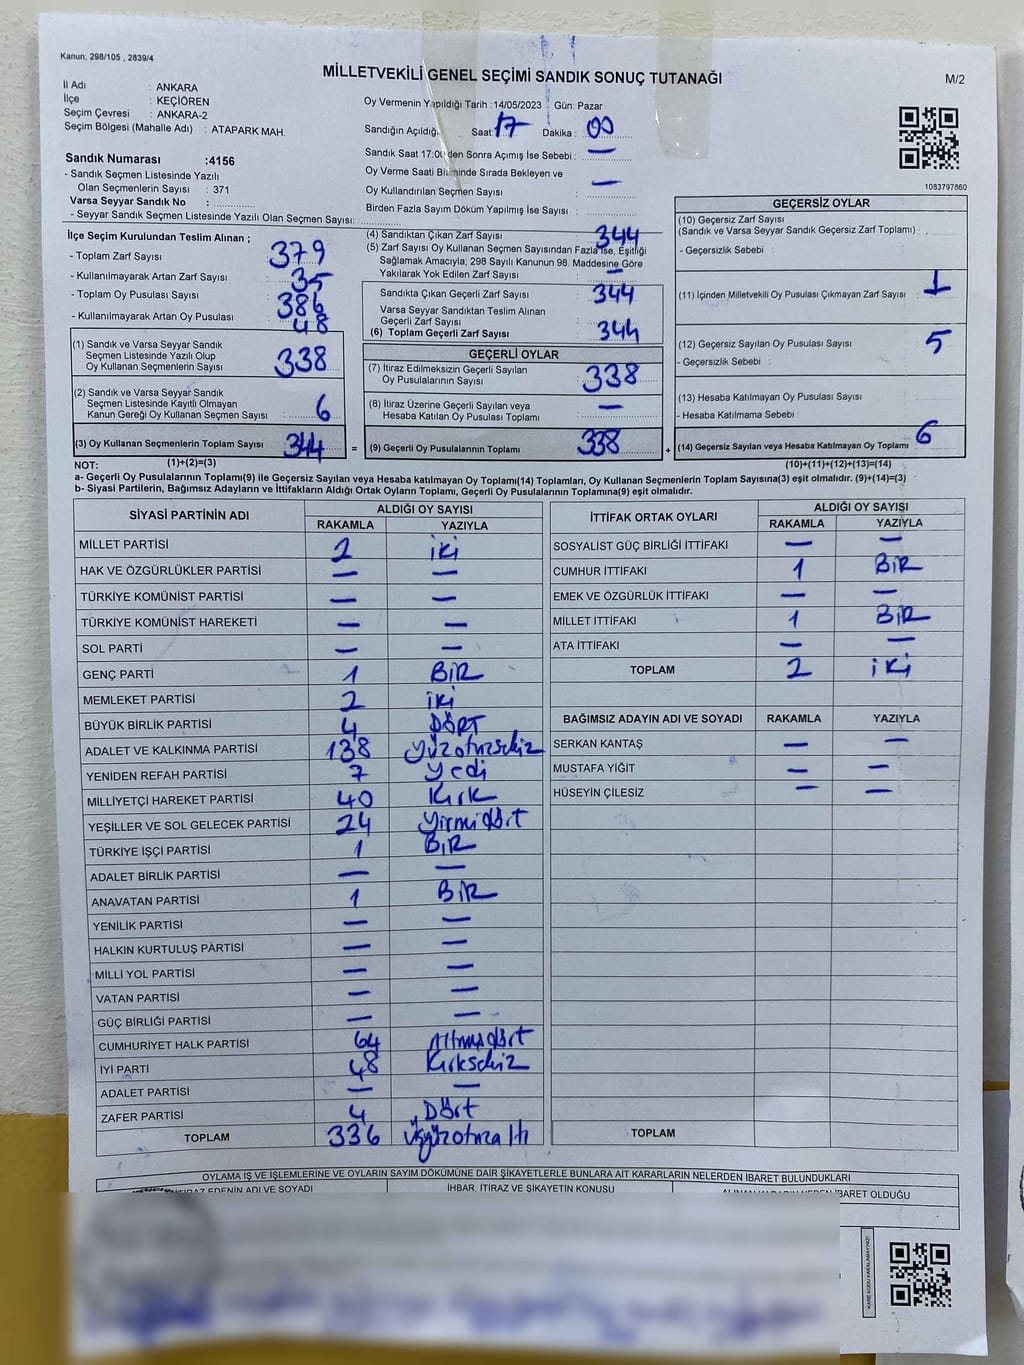 Kanun; 298/105 , 2839/4
MİLLETVEKİLİ GENEL SEÇİMİ SANDIK SONUÇ TUTANAĞI
M/2
İl Adı : ANKARA
İlçe : KEÇİÖREN
Seçim Çevresi : ANKARA-2
Seçim Bölgesi (Mahalle Adı) : ATAPARK MAH.
Oy Vermenin Yapıldığı Tarih :14/05/2023 Gün: Pazar
Sandığın Açıldığı Saat 17 Dakika : 00
Sandık Saat 17:00'den Sonra Açımış İse Sebebi : —
Oy Verme Saati Bitiminde Sırada Bekleyen ve
Oy Kullandırılan Seçmen Sayısı : —
Birden Fazla Sayım Döküm Yapılmış İse Sayısı :
1083797860
Sandık Numarası :4156
- Sandık Seçmen Listesinde Yazılı
Olan Seçmenlerin Sayısı : 371
Varsa Seyyar Sandık No :
- Seyyar Sandık Seçmen Listesinde Yazılı Olan Seçmen Sayısı:
İlçe Seçim Kurulundan Teslim Alınan ;
- Toplam Zarf Sayısı 379
- Kullanılmayarak Artan Zarf Sayısı : 35
- Toplam Oy Pusulası Sayısı : 386
- Kullanılmayarak Artan Oy Pusulası : 48
(1) Sandık ve Varsa Seyyar Sandık
Seçmen Listesinde Yazılı Olup
Oy Kullanan Seçmenlerin Sayısı : 338
(2) Sandık ve Varsa Seyyar Sandık
Seçmen Listesinde Kayıtlı Olmayan
Kanun Gereği Oy Kullanan Seçmen Sayısı : 6
(3) Oy Kullanan Seçmenlerin Toplam Sayısı : 344
(4) Sandıktan Çıkan Zarf Sayısı : 344
(5) Zarf Sayısı Oy Kullanan Seçmen Sayısından Fazla İse, Eşitliği
Sağlamak Amacıyla; 298 Sayılı Kanunun 98. Maddesine Göre
Yakılarak Yok Edilen Zarf Sayısı : —
Sandıkta Çıkan Geçerli Zarf Sayısı : 344
Varsa Seyyar Sandıktan Teslim Alınan
Geçerli Zarf Sayısı :
(6) Toplam Geçerli Zarf Sayısı : 344
GEÇERLİ OYLAR
(7) İtiraz Edilmeksizin Geçerli Sayılan
Oy Pusulalarının Sayısı : 338
(8) İtiraz Üzerine Geçerli Sayılan veya
Hesaba Katılan Oy Pusulası Toplamı : —
= (9) Geçerli Oy Pusulalarının Toplamı : 338
GEÇERSİZ OYLAR
(10) Geçersiz Zarf Sayısı
(Sandık ve Varsa Seyyar Sandık Geçersiz Zarf Toplamı) :
- Geçersizlik Sebebi :
(11) İçinden Milletvekili Oy Pusulası Çıkmayan Zarf Sayısı : 1
(12) Geçersiz Sayılan Oy Pusulası Sayısı : 5
- Geçersizlik Sebebi :
(13) Hesaba Katılmayan Oy Pusulası Sayısı :
- Hesaba Katılmama Sebebi :
+ (14) Geçersiz Sayılan veya Hesaba Katılmayan Oy Toplamı : 6
NOT: (1)+(2)=(3)
(10)+(11)+(12)+(13)=(14)
a- Geçerli Oy Pusulalarının Toplamı(9) ile Geçersiz Sayılan veya Hesaba katılmayan Oy Toplamı(14) Toplamları, Oy Kullanan Seçmenlerin Toplam Sayısına(3) eşit olmalıdır. (9)+(14)=(3)
b- Siyasi Partilerin, Bağımsız Adayların ve İttifakların Aldığı Ortak Oyların Toplamı, Geçerli Oy Pusulalarının Toplamına(9) eşit olmalıdır.
SİYASİ PARTİNİN ADI ALDIĞI OY SAYISI
RAKAMLA YAZIYLA
MİLLET PARTİSİ 2 iki
HAK VE ÖZGÜRLÜKLER PARTİSİ — —
TÜRKİYE KOMÜNİST PARTİSİ — —
TÜRKİYE KOMÜNİST HAREKETİ — —
SOL PARTİ — —
GENÇ PARTİ 1 BİR
MEMLEKET PARTİSİ 2 iki
BÜYÜK BİRLİK PARTİSİ 4 DÖRT
ADALET VE KALKINMA PARTİSİ 138 yüzotuzsekiz
YENİDEN REFAH PARTİSİ 7 yedi
MİLLİYETÇİ HAREKET PARTİSİ 40 Kırk
YEŞİLLER VE SOL GELECEK PARTİSİ 24 yirmidört
TÜRKİYE İŞÇİ PARTİSİ 1 BİR
ADALET BİRLİK PARTİSİ — —
ANAVATAN PARTİSİ 1 BİR
YENİLİK PARTİSİ — —
HALKIN KURTULUŞ PARTİSİ — —
MİLLİ YOL PARTİSİ — —
VATAN PARTİSİ — —
GÜÇ BİRLİĞİ PARTİSİ — —
CUMHURİYET HALK PARTİSİ 64 Altmışdört
İYİ PARTİ 48 Kırksekiz
ADALET PARTİSİ — —
ZAFER PARTİSİ 4 Dört
TOPLAM 336 üçyüzotuzaltı
İTTİFAK ORTAK OYLARI ALDIĞI OY SAYISI
RAKAMLA YAZIYLA
SOSYALİST GÜÇ BİRLİĞİ İTTİFAKI — —
CUMHUR İTTİFAKI 1 BİR
EMEK VE ÖZGÜRLÜK İTTİFAKI — —
MİLLET İTTİFAKI 1 BİR
ATA İTTİFAKI — —
TOPLAM 2 iki
BAĞIMSIZ ADAYIN ADI VE SOYADI RAKAMLA YAZIYLA
SERKAN KANTAŞ — —
MUSTAFA YİĞİT — —
HÜSEYİN ÇİLESİZ — —
TOPLAM
OYLAMA İŞ VE İŞLEMLERİNE VE OYLARIN SAYIM DÖKÜMÜNE DAİR ŞİKAYETLERLE BUNLARA AİT KARARLARIN NELERDEN İBARET BULUNDUKLARI
İTİRAZ EDENİN ADI VE SOYADI İHBAR, İTİRAZ VE ŞİKAYETİN KONUSU ALINAN KARARIN NEDEN İBARET OLDUĞU
KARE KODU KARALAMAYINIZ!